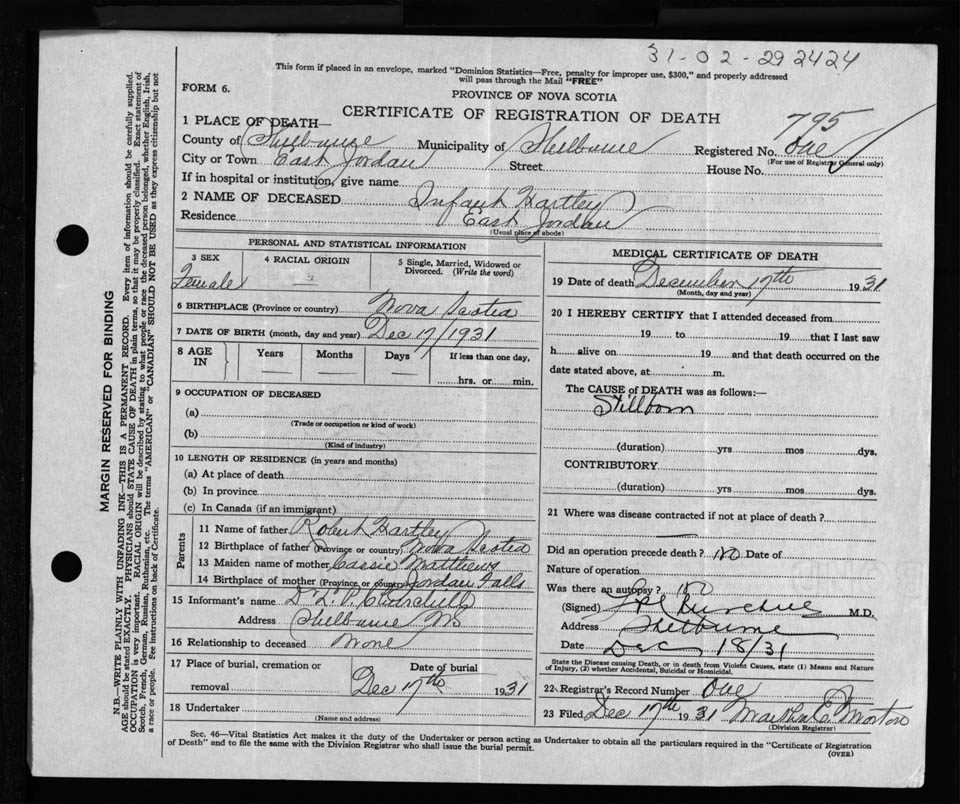 31-02-292424
This form if placed in an envelope, marked "Dominion Statistics—Free, penalty for improper use, $300," and properly addressed
will pass through the Mail "FREE"
FORM 6.
PROVINCE OF NOVA SCOTIA
CERTIFICATE OF REGISTRATION OF DEATH
795
1 PLACE OF DEATH—
County of Shelburne Municipality of Shelburne Registered No. One
(For use of Registrar General only)
City or Town East Jordan Street House No.
If in hospital or institution, give name
2 NAME OF DECEASED Infant Hartley
Residence East Jordan
(Usual place of abode)
PERSONAL AND STATISTICAL INFORMATION
3 SEX 4 RACIAL ORIGIN 5 Single, Married, Widowed or
Divorced. (Write the word)
Female
6 BIRTHPLACE (Province or country) Nova Scotia
7 DATE OF BIRTH (month, day and year) Dec 17/1931
8 AGE IN Years Months Days If less than one day,
— — — hrs. or min.
9 OCCUPATION OF DECEASED
(a)
(Trade or occupation or kind of work)
(b)
(Kind of industry)
10 LENGTH OF RESIDENCE (in years and months)
(a) At place of death
(b) In province
(c) In Canada (if an immigrant)
Parents
11 Name of father Robert Hartley
12 Birthplace of father (Province or country) Nova Scotia
13 Maiden name of mother Cassie Matthews
14 Birthplace of mother (Province or country) Jordan Falls
15 Informant's name Dr L. P. Churchill
Address Shelburne NS
16 Relationship to deceased None
17 Place of burial, cremation or Date of burial
removal Dec 17th 1931
18 Undertaker
(Name and address)
MEDICAL CERTIFICATE OF DEATH
19 Date of death December 17th 1931
(Month, day and year)
20 I HEREBY CERTIFY that I attended deceased from
19 to 19 that I last saw
h alive on 19 and that death occurred on the
date stated above, at m.
The CAUSE of DEATH was as follows:—
Stillborn
(duration) yrs mos dys.
CONTRIBUTORY
(duration) yrs mos dys.
21 Where was disease contracted if not at place of death?
—
Did an operation precede death? no Date of
Nature of operation
Was there an autopsy? no
(Signed) L P Churchill M.D.
Address Shelburne
Date Dec 18/31
State the Disease causing Death, or in death from Violent Causes, state (1) Means and Nature
of Injury, (2) whether Accidental, Suicidal or Homicidal.
22 Registrar's Record Number One
23 Filed Dec 17th 1931 Martha E. Morton
(Division Registrar)
Sec. 46—Vital Statistics Act makes it the duty of the Undertaker or person acting as Undertaker to obtain all the particulars required in the "Certificate of Registration
of Death" and to file the same with the Division Registrar who shall issue the burial permit.
(OVER)
MARGIN RESERVED FOR BINDING
N.B.—WRITE PLAINLY WITH UNFADING INK—THIS IS A PERMANENT RECORD. Every item of information should be carefully supplied.
AGE should be stated EXACTLY. PHYSICIANS should STATE CAUSE OF DEATH in plain terms, so that it may be properly classified. Exact statement of
OCCUPATION is very important. RACIAL ORIGIN will be described by stating to what people or race the deceased person belonged, whether English, Irish,
Scotch, French, German, Russian, Ruthenian, etc. The terms "AMERICAN" or "CANADIAN" SHOULD NOT BE USED as they express citizenship but not
a race or people. See instructions on back of Certificate.